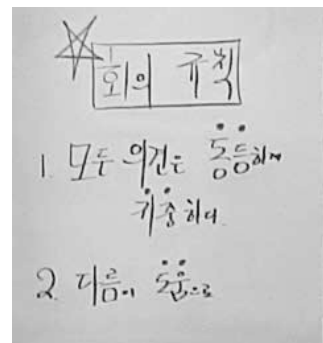 회의 규칙
1. 모두 의견은 동등하게
귀중하다.
2. 다름이 도움으로